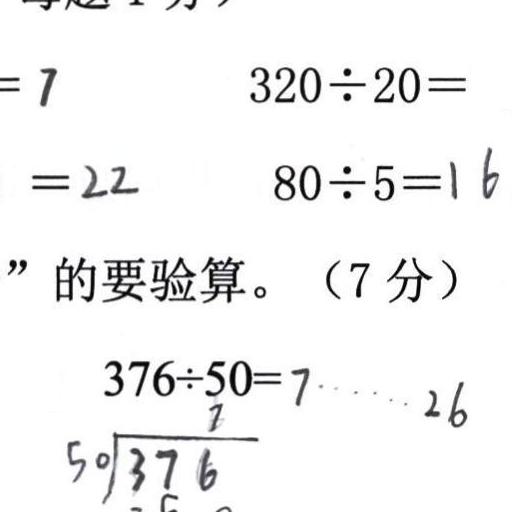 = 7 320÷20=
=22 80÷5=16
”的要验算。（7 分）
376÷50=7……26
7
50 376